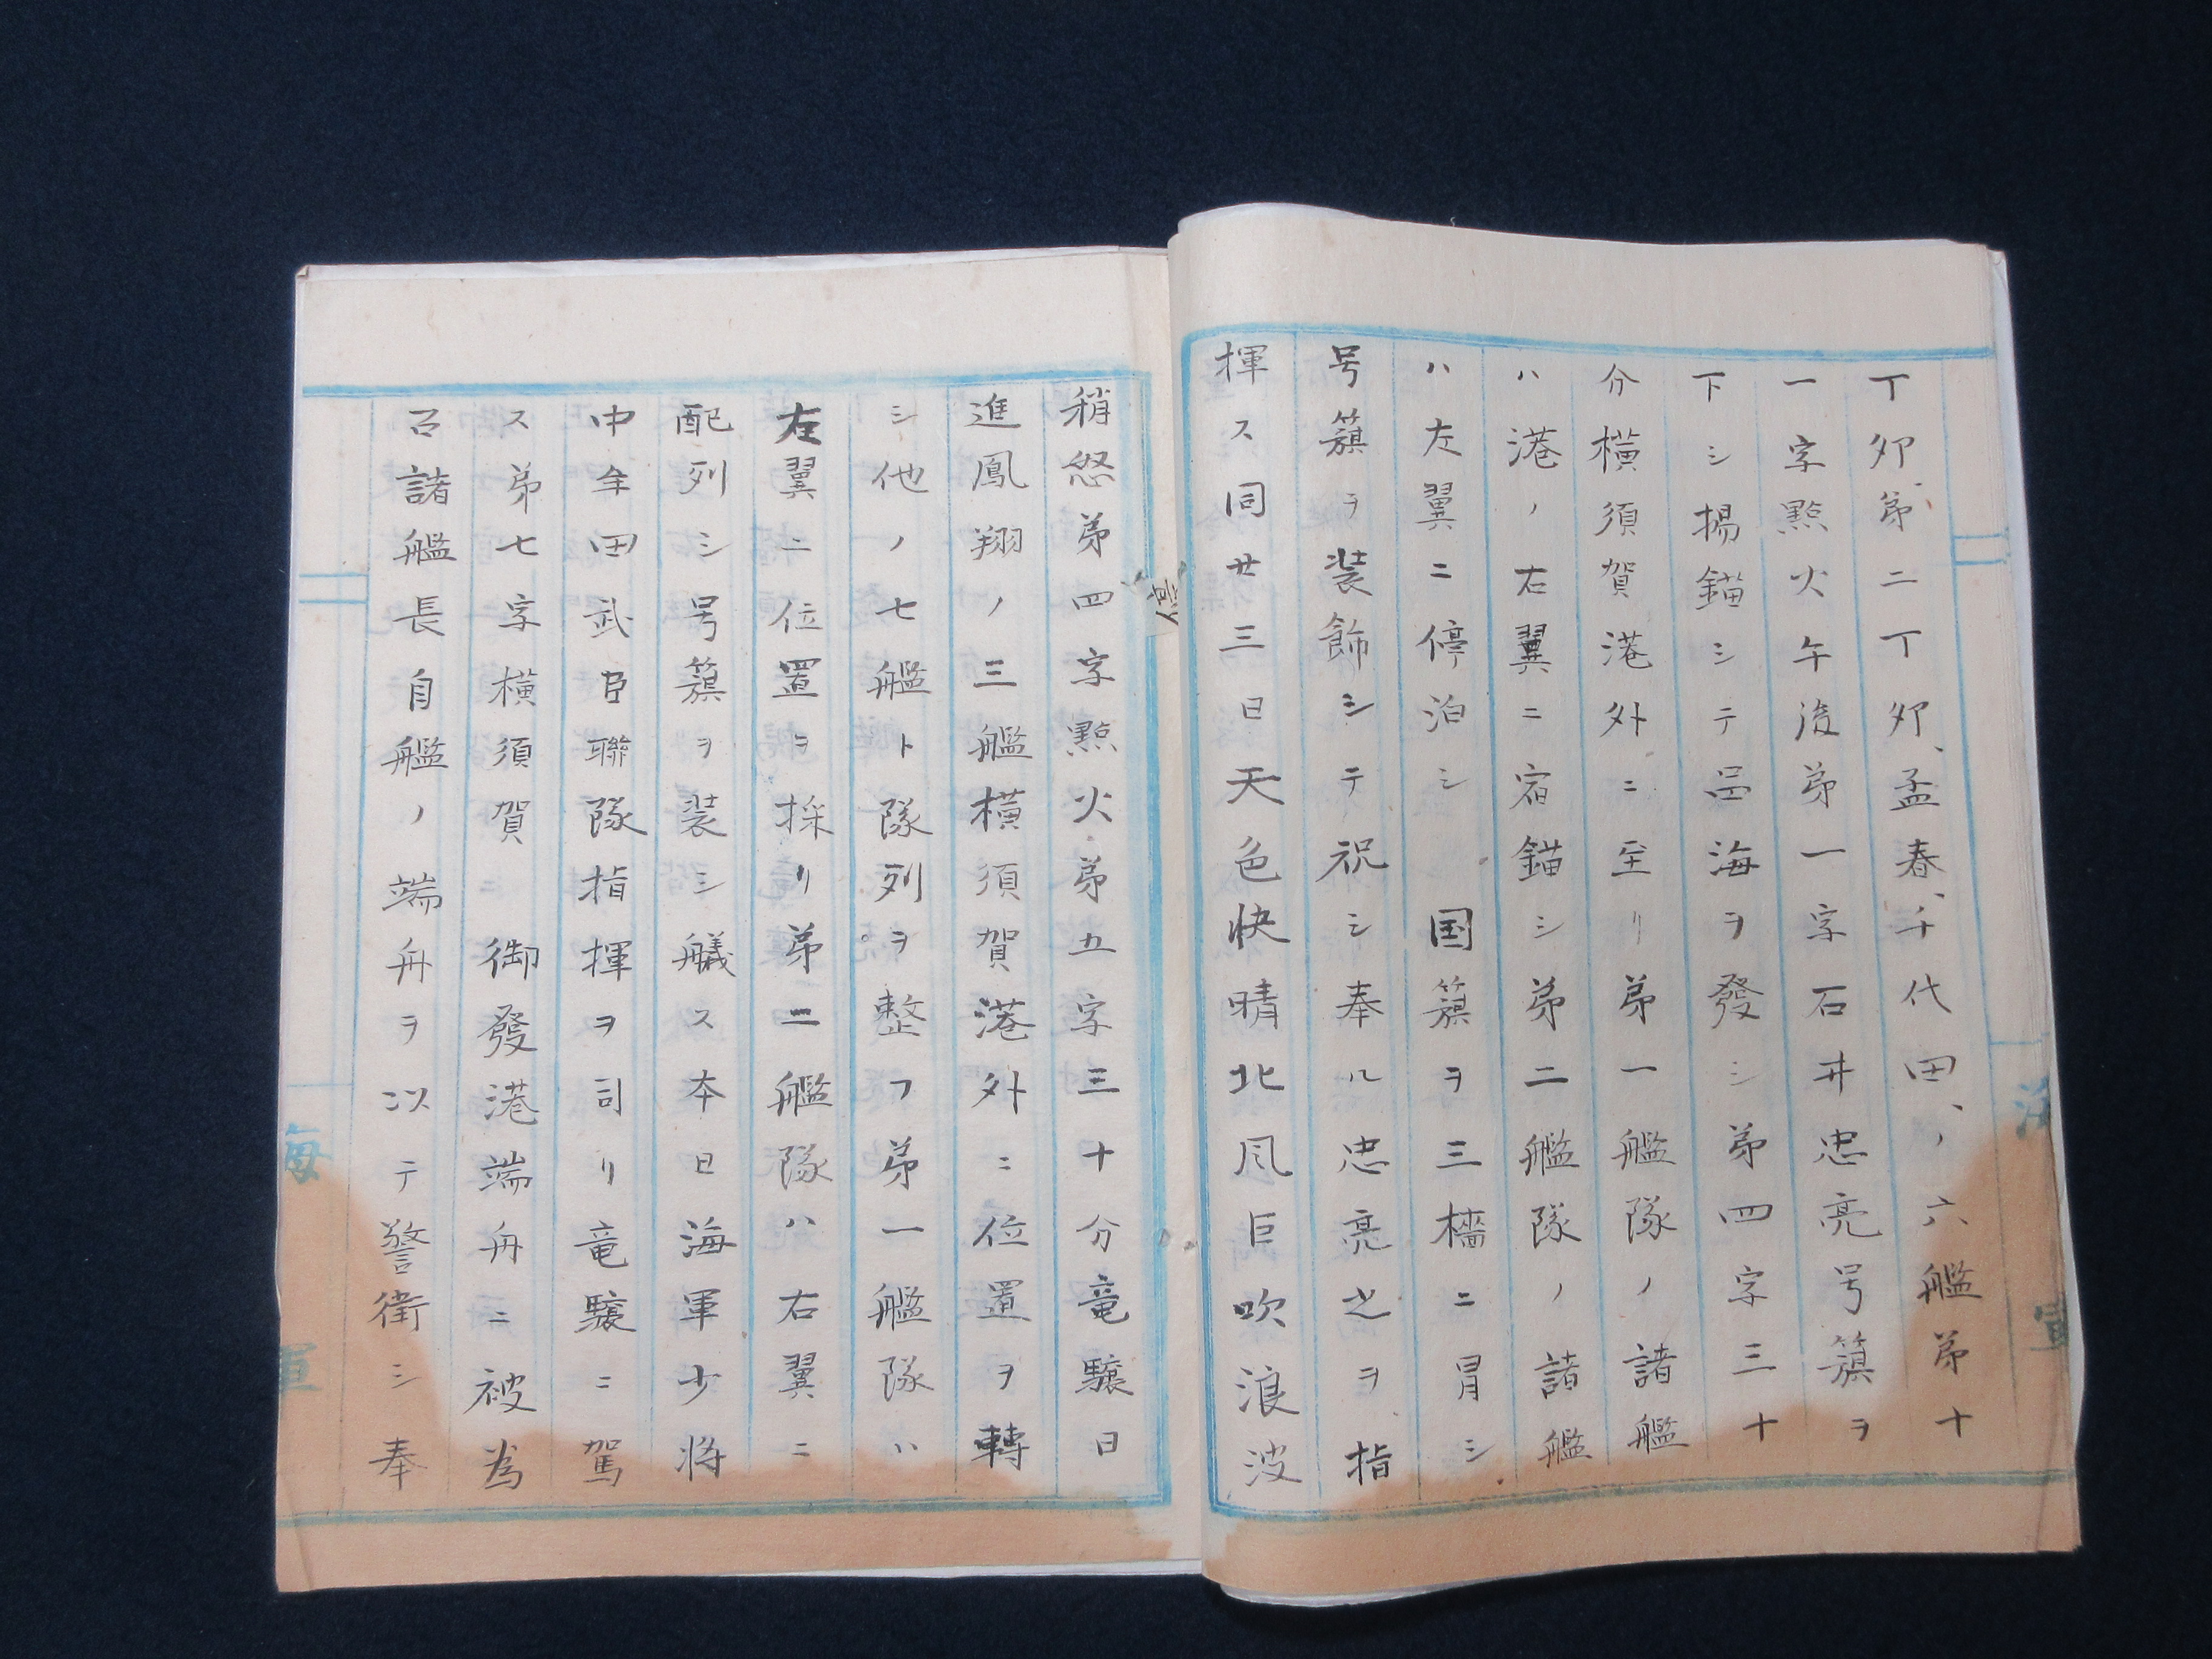 丁卯第二丁卯、孟春、千代田、ノ六艦第十
一字點火午後第一字石井忠亮号籏ヲ
下シ揚錨シテ品海ヲ發シ第四字三十
分横須賀港外ニ至リ第一艦隊ノ諸艦
ハ港ノ右翼ニ宿錨シ第二艦隊ノ諸艦
ハ左翼ニ停泊シ 国籏ヲ三檣ニ冒シ
号籏ヲ装飾シテ祝シ奉ル忠亮之ヲ指
揮ス同廿三日天色快晴北風巨吹浪波
稍怒第四字點火第五字三十分竜驤日
進鳳翔ノ三艦横須賀港外ニ位置ヲ轉
シ他ノ七艦ト隊列ヲ整フ第一艦隊ハ
左翼ニ位置ヲ採リ第二艦隊ハ右翼ニ
配列シ号籏ヲ装シ艤ス本日海軍少将
中牟田武臣聯隊指揮ヲ司リ竜驤ニ駕
ス第七字横須賀ニ 御發港端舟ニ被為
召諸艦長自艦ノ端舟ヲ以テ警衛シ奉
海軍
海軍